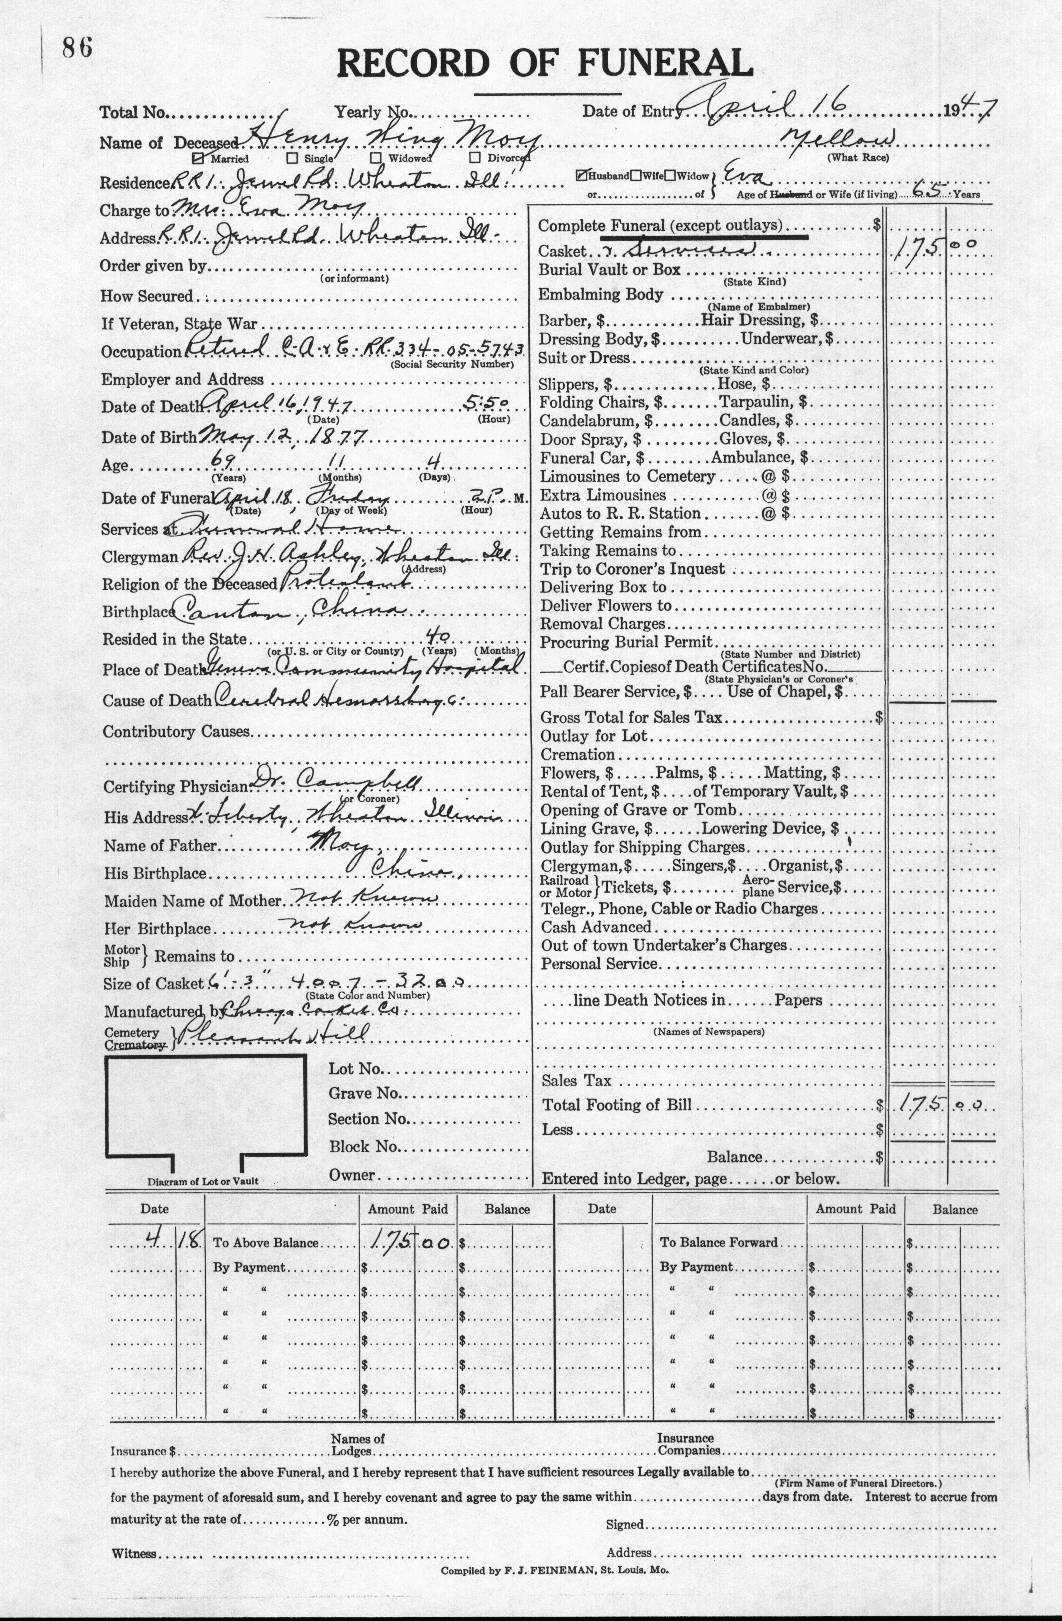 86
RECORD OF FUNERAL
Total No. Yearly No. Date of Entry April 16 1947
Name of Deceased Henry Wing Moy Yellow
Married Single Widowed Divorced (What Race)
Residence RR 1. Jewel Rd. Wheaton Ill. Husband Wife Widow } Eva
or of Age of Husband or Wife (if living) 65 Years
Charge to Mrs. Eva Moy
Address R.R.1. Jewel Rd. Wheaton Ill.
Order given by
(or informant)
How Secured
If Veteran, State War
Occupation Retired C. A. & E. RR. 334-05-5743
(Social Security Number)
Employer and Address
Date of Death April 16, 1947 5:50
(Date) (Hour)
Date of Birth May 12, 1877
Age 69 11 4
(Years) (Months) (Days)
Date of Funeral April 18, Friday 2 P. M.
(Date) (Day of Week) (Hour)
Services at Funeral Home
Clergyman Rev. J. H. Ashley, Wheaton Ill.
(Address)
Religion of the Deceased Protestant
Birthplace Canton, China
Resided in the State 40
(or U. S. or City or County) (Years) (Months)
Place of Death Geneva Community Hospital
Cause of Death Cerebral Hemorrhage
Contributory Causes
Certifying Physician Dr. Campbell
(or Coroner)
His Address W. Liberty, Wheaton Illinois
Name of Father Moy,
His Birthplace China,
Maiden Name of Mother Not Known
Her Birthplace Not Known
Motor
Ship } Remains to
Size of Casket 6'-3" 4007-3200
(State Color and Number)
Manufactured by Chicago Casket Co.
Cemetery
Crematory } Pleasant Hill
Lot No.
Grave No.
Section No.
Block No.
Owner
Diagram of Lot or Vault
Complete Funeral (except outlays) $
Casket & Services 175 00
Burial Vault or Box
(State Kind)
Embalming Body
(Name of Embalmer)
Barber, $ Hair Dressing, $
Dressing Body, $ Underwear, $
Suit or Dress
(State Kind and Color)
Slippers, $ Hose, $
Folding Chairs, $ Tarpaulin, $
Candelabrum, $ Candles, $
Door Spray, $ Gloves, $
Funeral Car, $ Ambulance, $
Limousines to Cemetery @ $
Extra Limousines @ $
Autos to R. R. Station @ $
Getting Remains from
Taking Remains to
Trip to Coroner's Inquest
Delivering Box to
Deliver Flowers to
Removal Charges
Procuring Burial Permit
(State Number and District)
Certif. Copies of Death Certificates No.
(State Physician's or Coroner's
Pall Bearer Service, $ Use of Chapel, $
Gross Total for Sales Tax $
Outlay for Lot
Cremation
Flowers, $ Palms, $ Matting, $
Rental of Tent, $ of Temporary Vault, $
Opening of Grave or Tomb
Lining Grave, $ Lowering Device, $
Outlay for Shipping Charges
Clergyman, $ Singers, $ Organist, $
Railroad
or Motor } Tickets, $ Aero-
plane Service, $
Telegr., Phone, Cable or Radio Charges
Cash Advanced
Out of town Undertaker's Charges
Personal Service
line Death Notices in Papers
(Names of Newspapers)
Sales Tax
Total Footing of Bill $ 175 00
Less $
Balance $
Entered into Ledger, page or below.
Date Amount Paid Balance Date Amount Paid Balance
4 18 To Above Balance 175 00 $ To Balance Forward $
By Payment $ $ By Payment $ $
" " $ $ " " $ $
" " $ $ " " $ $
" " $ $ " " $ $
" " $ $ " " $ $
" " $ $ " " $ $
" " $ $ " " $ $
Insurance $ Names of
Lodges Insurance
Companies
I hereby authorize the above Funeral, and I hereby represent that I have sufficient resources Legally available to
(Firm Name of Funeral Directors.)
for the payment of aforesaid sum, and I hereby covenant and agree to pay the same within days from date. Interest to accrue from
maturity at the rate of % per annum.
Signed
Witness Address
Compiled by F. J. FEINEMAN, St. Louis, Mo.